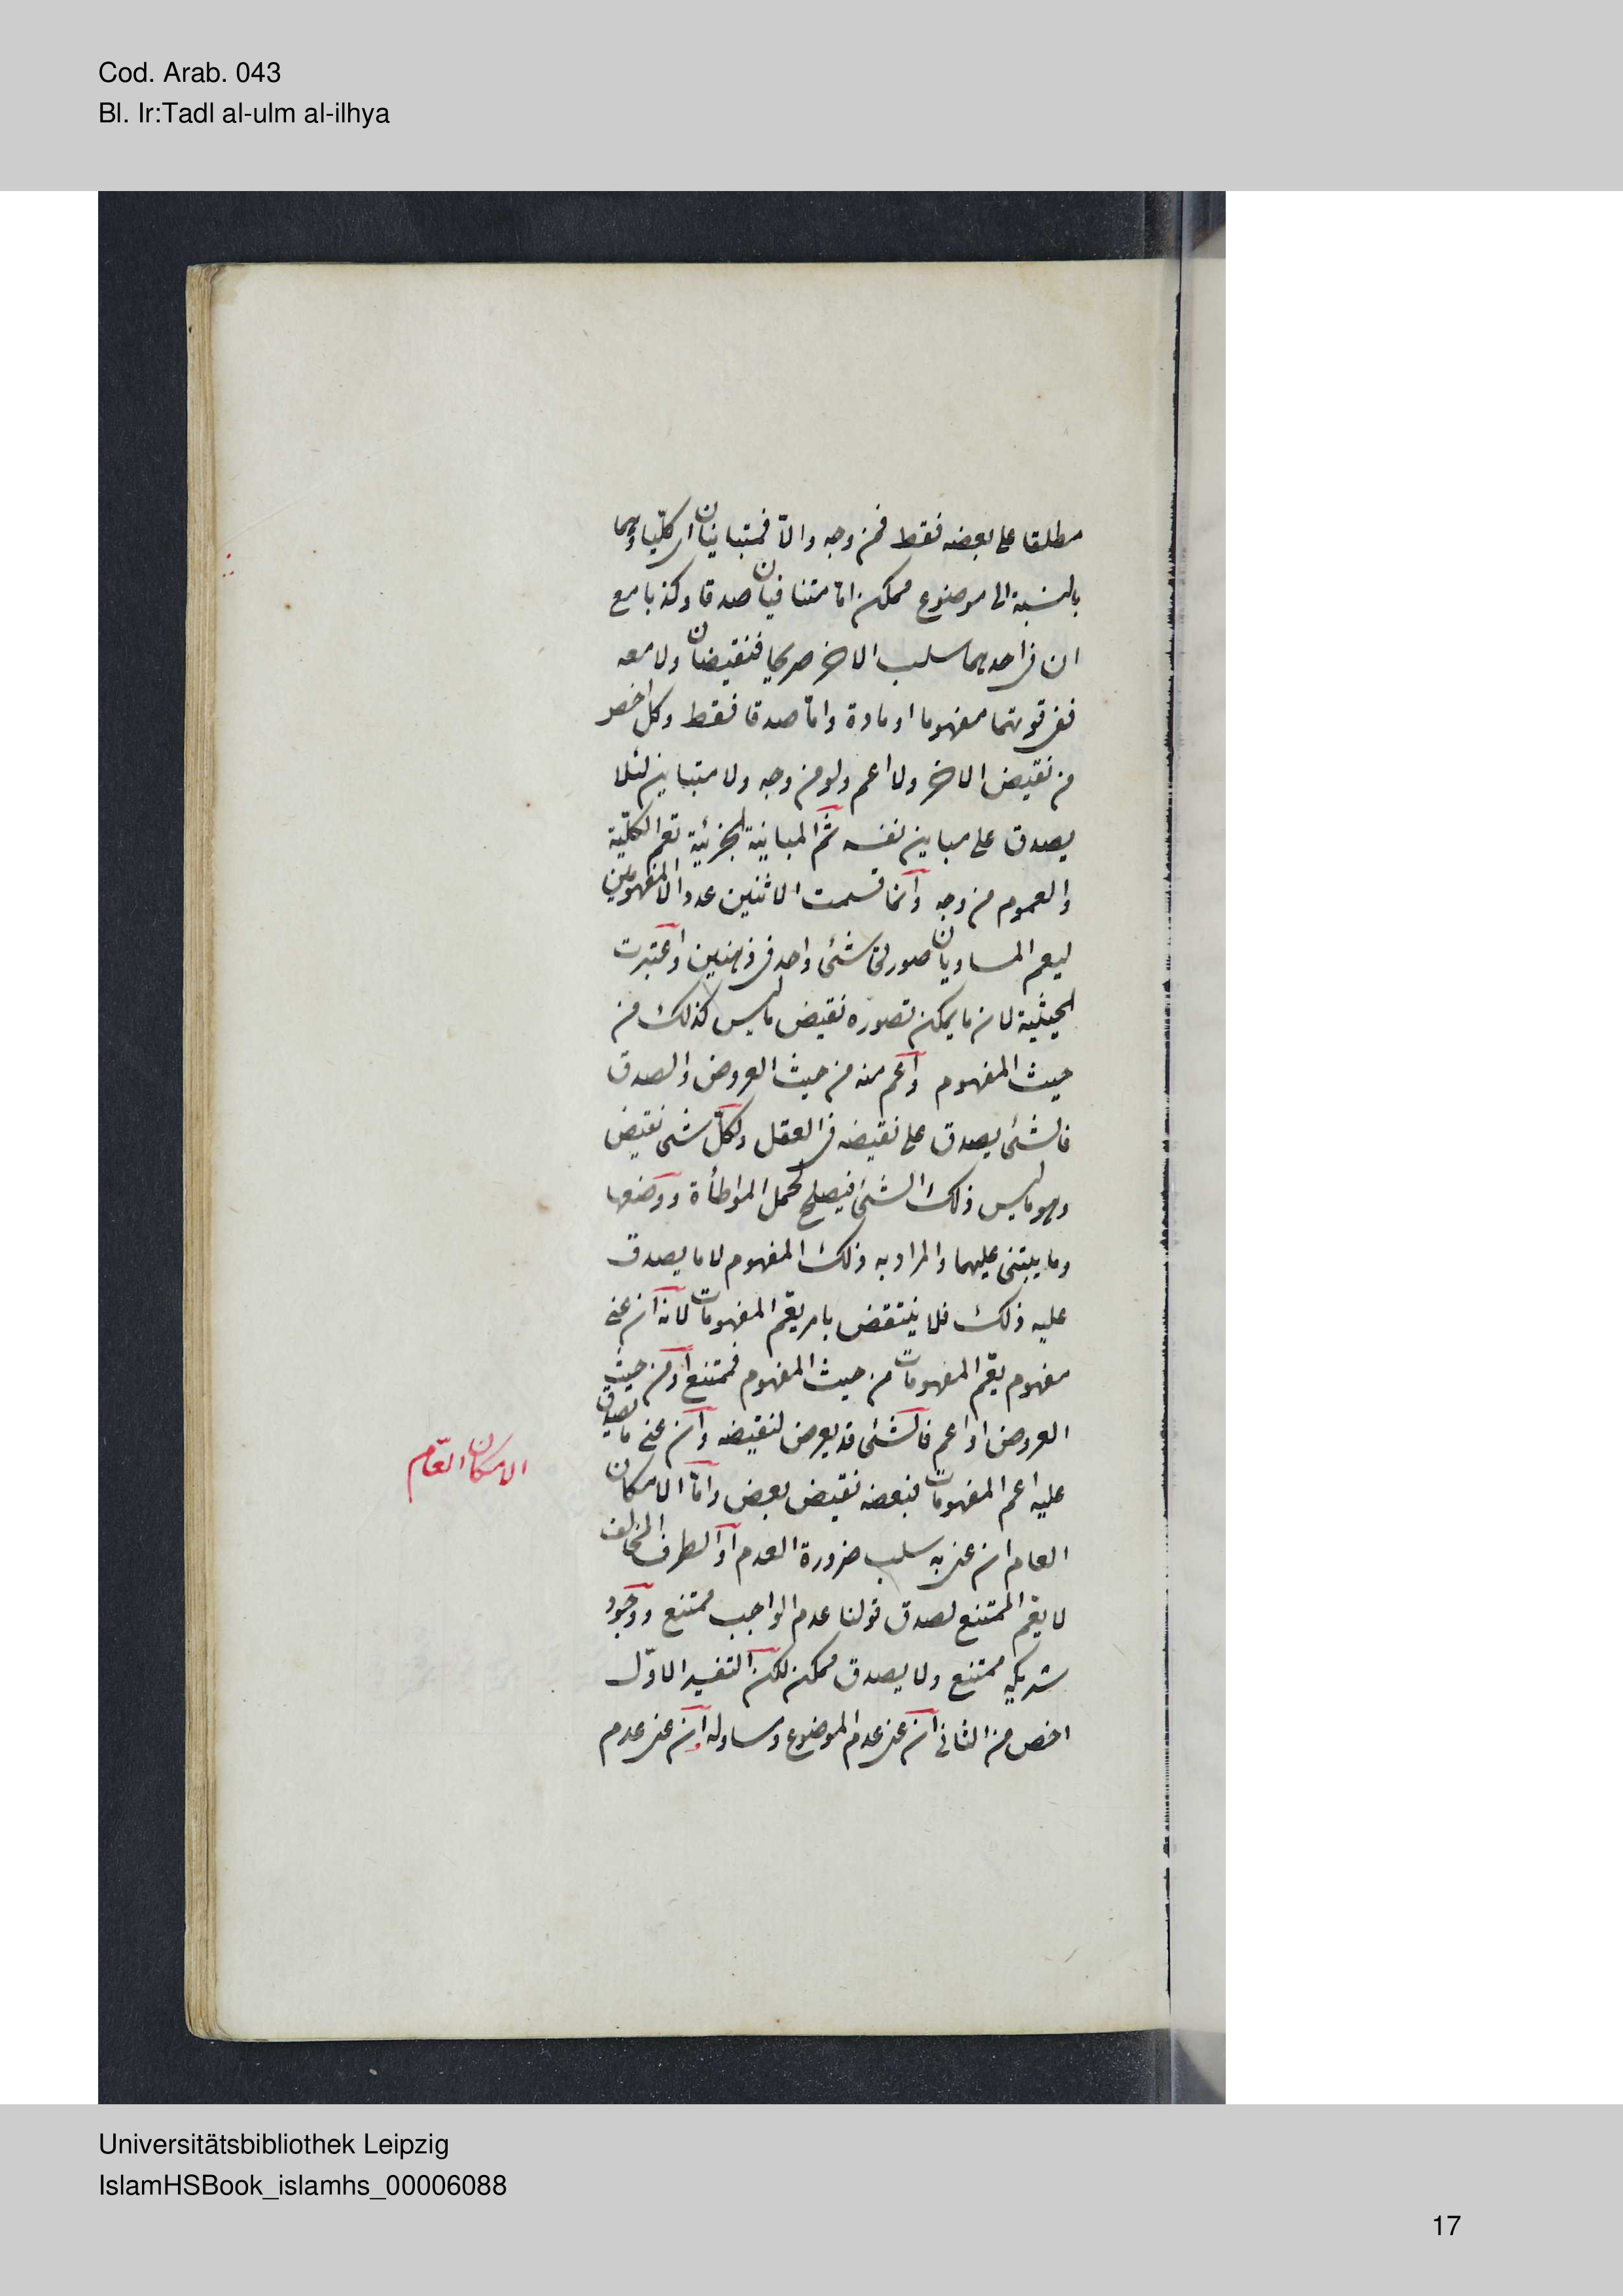 Cod. Arab. 043
Bl. Ir:Tadl al-ulm al-ilhya
مطلقا على بعضه فقط فمن وجه والّا فمتباينان اى كليا وهما
بالنسبة الى موضوع ممكن امّا متنافيان صدقا وكذبا مع
ان فى احديهما سلب الاخر صريحا فنقيضان ولا معه
ففى قوتهما مفهوما او مادة وامّا صدقا فقط وكل اخص
من نقيض الاخر ولا اعم ولو من وجه ولا متباين لئلا
يصدق على مباين نفسه ثمّ المباينة الجزئية تعم الكلّية
والعموم من وجه وانّما قسمت الاثنين عدد المفهومين
ليعم المساويان صورتى شئ واحد فى ذهنين واعتبرت
الحيثية لان ما يمكن تصوره نقيض ما ليس كذلك من
حيث المفهوم واعم منه من حيث العروض والصدق
فالشئ يصدق على نقيضه فى العقل ولكلّ شئ نقيض
وهو ما ليس ذلك الشئ فيصلح لحمل المواطأة ووضعها
وما يبتنى عليهما والمراد به ذلك المفهوم لا ما يصدق
عليه ذلك فلا ينتقض بامر يعم المفهومات لانه ان عنى
مفهوم يعم المفهومات من حيث المفهوم فممتنع او من حيث
العروض او اعم فالشئ قد يعرض لنقيضه وان عنى ما يصدق
عليه اعم المفهومات فبعضه نقيض بعض وامّا الامكان
الامكان العامّ
العام ان عنى به سلب ضرورة العدم او الطرف المخالف
لا يعم الممتنع لصدق قولنا عدم الواجب ممتنع ووجود
شريكه ممتنع ولا يصدق ممكن لكن التفسير الاوّل
اخص من الثانى ان عنى عدم الموضوع ومساو له ان عنى عدم
Universitätsbibliothek Leipzig
IslamHSBook_islamhs_00006088
17